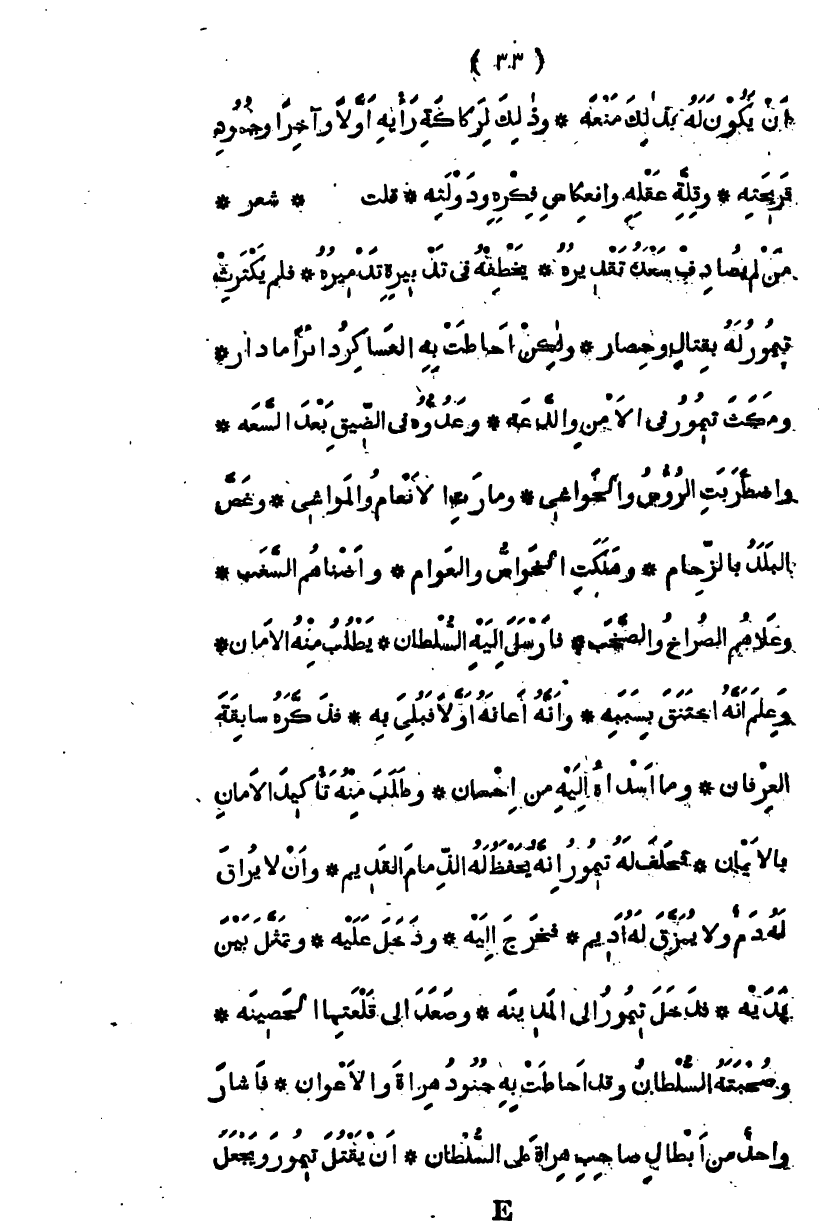 ( ٣٣ )
أَنْ يَكُوْنَ لَهُ بِذٰلِكَ مَنْعَه * وذٰلِكَ لِرَكاكَةِ رَأْيِهِ أَوَّلاً وآخِرًا وجُمُودِ
قَرِيحَتِه * وقِلَّةِ عَقْلِهِ وانعِكاسِ فِكْرِهِ ودَوْلَتِه * قلت * شعر *
مَنْ لم يُصادِفْ سَعْدَهُ تَقْدِيرُهُ * يَخْطِفْهُ فى تَدْبِيرِهِ تَدْمِيرُهُ * فلم يَكْتَرِثْ
تِيمُورُ لَهُ بقِتالٍ وحِصار * ولٰكِنْ أَحاطَتْ بِهِ العَساكِرُ دائرًا مادار *
ومَكَثَ تيمُورُ فى الاَمْنِ والدَّعَه * وعَدُوُّهُ فى الضِّيقِ بَعْدَ السَّعَه *
واضطَرَبَتِ الرُّؤُسُ والحَواشِى * ومارَتِ الاَنْعامُ والمَواشِى * وغَصَّ
البَلَدُ بالزِّحام * وهَلَكَتِ الخَواصُّ والعَوام * وأَضْناهُم السَّغَب *
وعَلاهُم الصُّراخُ والصَّخَب * فأَرْسَلَ إلَيْهِ السُّلْطان * يَطْلُبُ مِنْهُ الاَمان *
وعَلِمَ أَنَّهُ اخْتَنَقَ بِسَبَبِه * وأَنَّهُ أَعانَهُ أَوَّلاً فَبُلِىَ بِه * فذَكَّرَهُ سابِقَةَ
العِرْفان * وما أَسْداهُ إلَيْهِ من إحْسان * وطَلَبَ مِنْهُ تَأْكِيدَ الاَمانِ
بالاَيْمان * فحَلَفَ لَهُ تِيمُورُ إنَّهُ يَحْفَظُ لَهُ الذِّمامَ القَدِيم * وأَنْ لا يُراقَ
لَهُ دَمٌ ولا يُمَزَّقَ لَهُ أَدِيم * فخَرَجَ إلَيْه * ودَخَلَ عَلَيْه * وتَمَثَّلَ بَيْنَ
يَدَيْه * فدَخَلَ تِيمُورُ إلى المَدِينَه * وصَعَدَ إلى قَلْعَتِها الحَصِينَه *
وصُحْبَتَهُ السُّلْطانُ وقد أَحاطَتْ بِهِ جُنُودُ هِراةَ والاَعْوان * فأَشارَ
واحِدٌ من أَبْطالِ صاحِبِ هِراةَ على السُّلْطان * أَنْ يَقْتُلَ تِيمُورَ ويَجْعَلَ
E